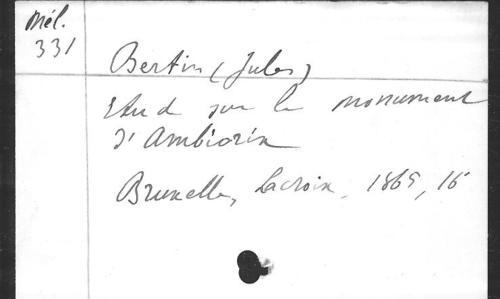 Mél.
331
Bertin (Jules)
Etud sur le monument
d'Ambiorix
Bruxelles, Lacroix, 1865, 16